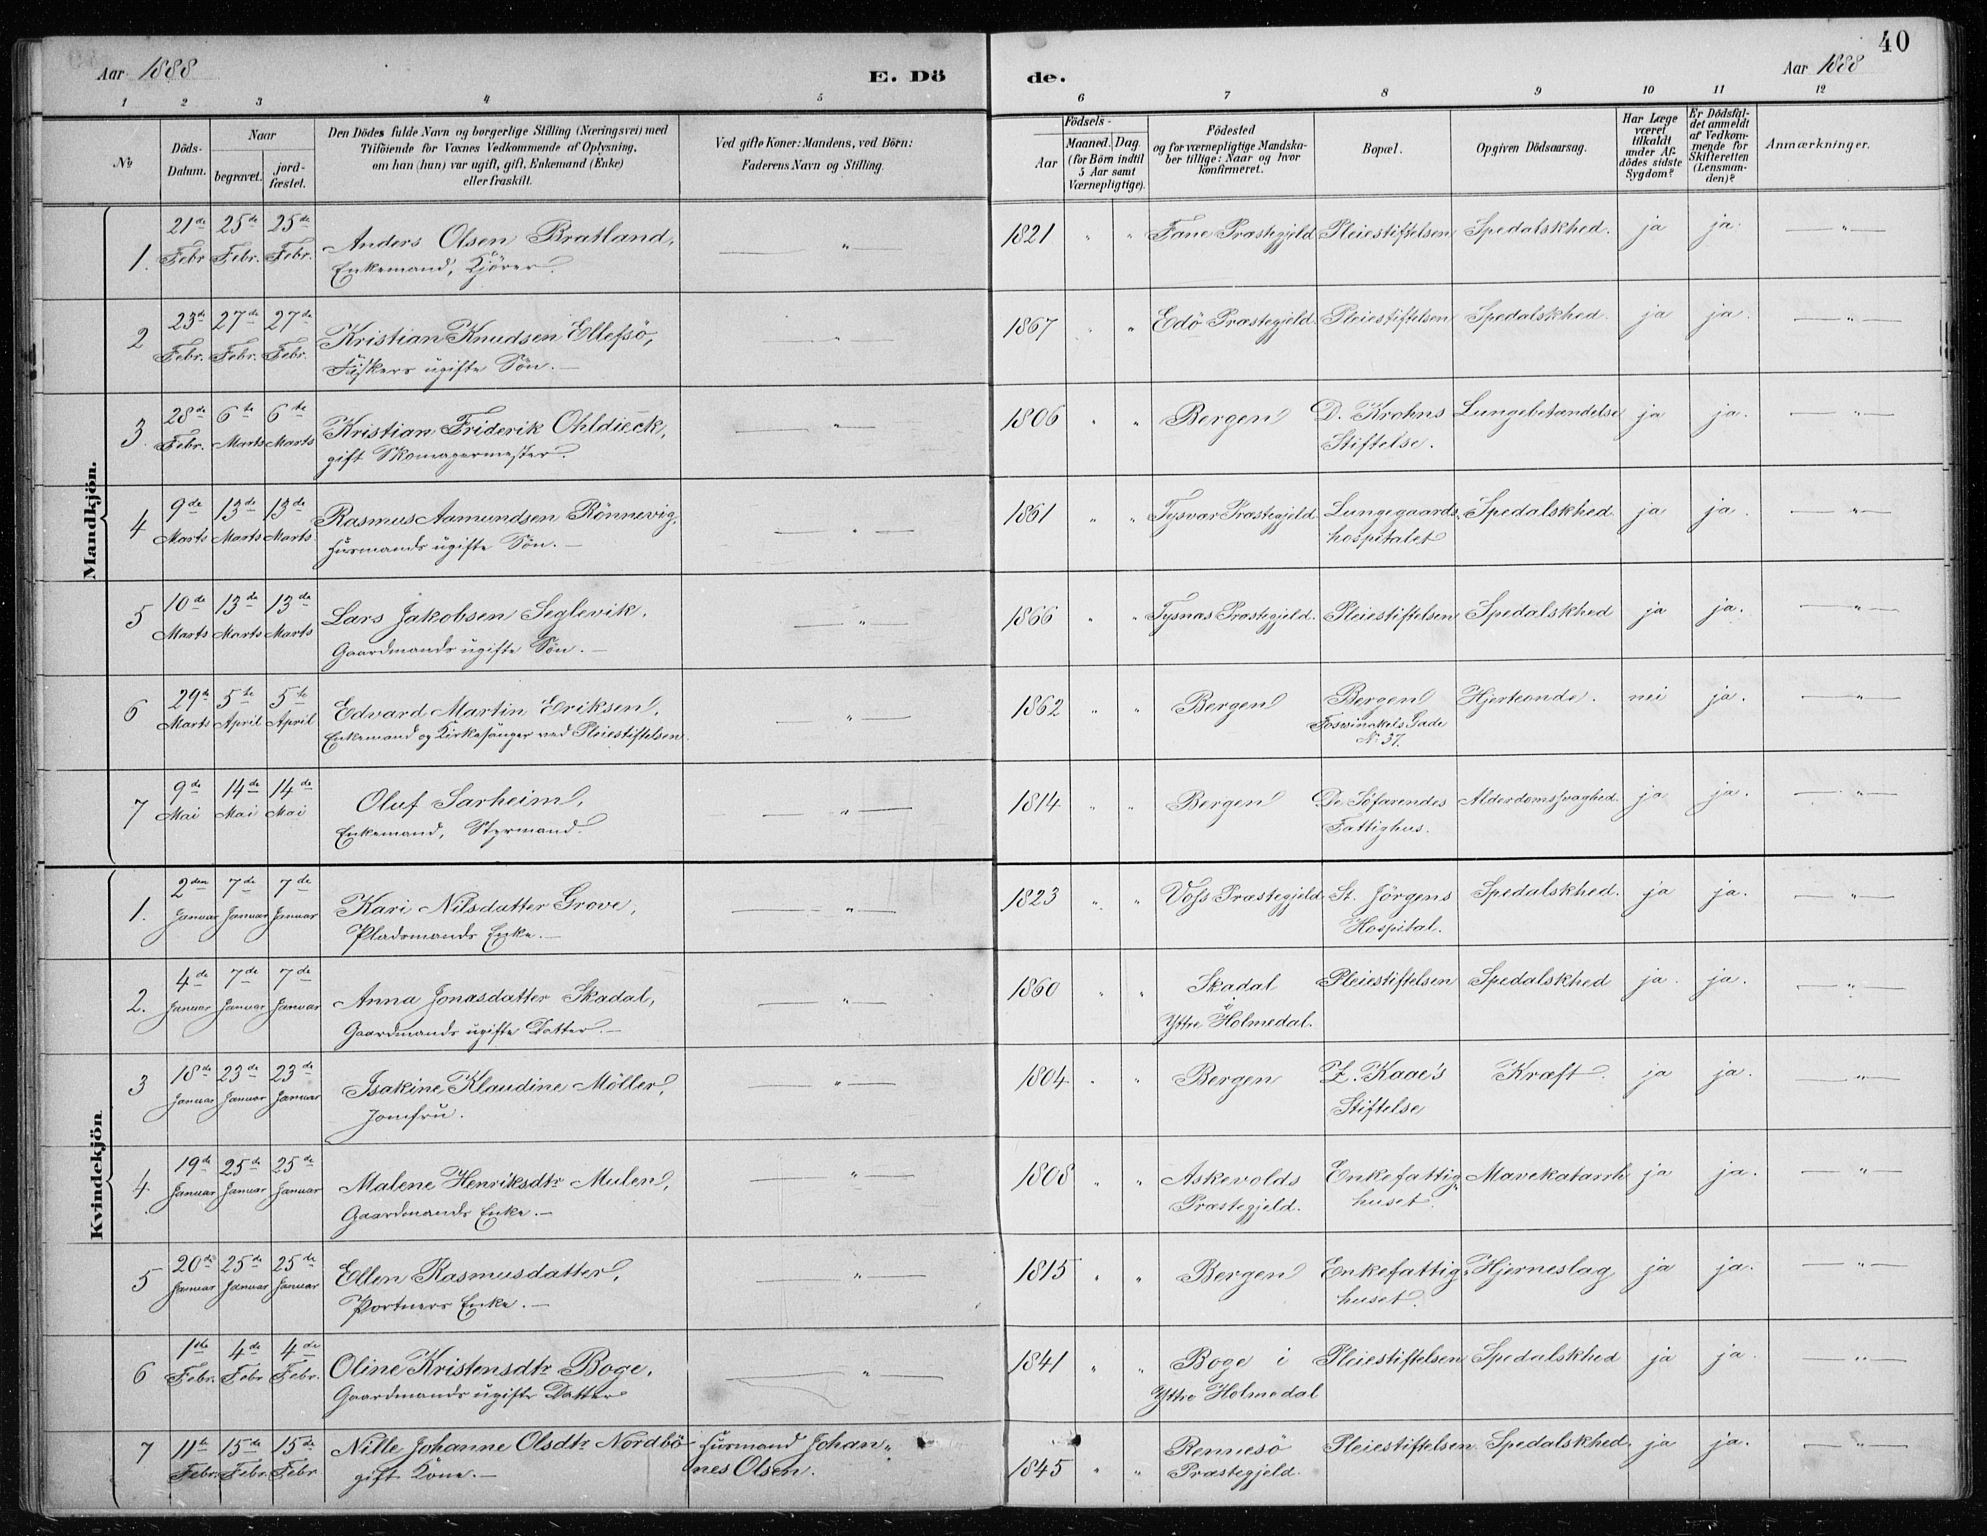 40
Aar 1888
E. Dö
de.
Aar 1888
1 2 3 4 5 6 7 8 9 10 11 12
No
Döds-
Datum.
Naar
begravet.
jord-
fæstet.
Den Dödes fulde Navn og borgerlige Stilling (Næringsvei) med
Tilföiende for Voxnes Vedkommende af Oplysning,
om han (hun) var ugift, gift, Enkemand (Enke)
eller fraskilt.
Ved gifte Koner: Mandens, ved Börn:
Faderens Navn og Stilling.
Födsels-
Aar
Maaned. Dag.
(for Börn indtil
5 Aar samt
Værnepligtige).
Födested
og for værnepligtige Mandska-
ber tillige: Naar og hvor
konfirmeret.
Bopæl.
Opgiven Dödsaarsag.
Har Læge
været
tilkaldt
under Af-
dödes sidste
Sygdom?
Er Dödsfal-
det anmeldt
af Vedkom-
mende for
Skifteretten
(Lensman-
den)?
Anmærkninger.
Mandkjön.
1. 21de Febr 25de Febr. 25de Febr. Anders Olsen Bratland, — " — 1821 " " Fane Præstegjeld Pleiestiftelsen Spedalskhed. ja ja. — " —
Enkemand, Kjörer.
2 23de Febr. 27de Febr. 27de Febr. Kristian Knudsen Ellefsö, — " — 1867 " " Edö Præstegjeld. Pleiestiftelsen Spedalskhed. ja ja. — " —
Fiskers ugifte Sön. —
3. 28de Febr. 6te Marts 6te Marts Kristian Friderik Ohldieck, — " — 1806 " " Bergen D. Krohns Lungebetændelse ja ja. — " —
gift Skomagermester. Stiftelse.
4 9de Marts 13de Marts 13de Marts Rasmus Aamundsen Rönnevig, — " — 1861 " " Tysvær Præstegjeld. Lungegaards- Spedalskhed ja ja. — " —
Husmands ugifte Sön. — hospitalet
5 10de Marts 13de Marts 13de Marts Lars Jakobsen Seglevik, — " — 1866 " " Tysnæs Præstegjeld. Pleiestiftelsen Spedalskhed ja ja. — " —
Gaardmands ugifte Sön. —
6 29de Marts 5te April 5te April Edvard Martin Eriksen, — " — 1862 " " Bergen Bergen Hjerteonde. nei ja. — " —
Enkemand og Kirkesanger ved Pleiestiftelsen. Foswinckels Gade
N. 37.
7 9de Mai 14de Mai 14de Mai Oluf Sarheim, — " — 1814 " " Bergen De Söfarendes Alderdomssvaghed. ja ja. — " —
Enkemand, Styrmand. Fattighus.
Kvindekjön
1. 2den Januar 7de Januar 7de Januar Kari Nilsdatter Grove, — " — 1823 " " Voss Præstegjeld. St. Jörgens Spedalskhed. ja ja. — " —
Pladsmands Enke. — Hospital.
2. 4de Januar 7de Januar 7de Januar Anna Jonasdatter Skadal, — " — 1860 " " Skadal Pleiestiftelsen Spedalskhed ja. ja. — " —
Gaardmands ugifte Datter. — i
Yttre Holmedal.
3 18de Januar 23de Januar 23de Januar Isakine Klaudine Möller, — " — 1804 " " Bergen Z. Kaae's Kræft. ja ja. — " —
Jomfru. Stiftelse
4. 19de Januar 25de Januar 25de Januar Malene Henriksdtr Mulen, — " — 1808 " " Askevolds Enkefattig- Mavekatarrh ja ja. — " —
Gaardmands Enke. — Præstegjeld. huset.
5 20de Januar 25de Januar 25de Januar Ellen Rasmusdatter, — " — 1815 " " Bergen Enkefattig- Hjerneslag ja ja. — " —
Portners Enke. — huset.
6 1ste Febr. 4de Febr 4de Febr. Oline Kristensdtr Boge, — " — 1841 " " Boge i Pleiestiftelsen Spedalskhed ja ja. — " —
Gaardmands ugifte Datter Yttre Holmedal
7 11te Febr. 15de Febr. 15de Febr Nille Johanne Olsdtr Nordbö Husmand Johan- 1845 " " Rennesö Pleiestiftelsen Spedalskhed. ja ja. — " —
gift Kone. — nes Olsen. Præstegjeld.